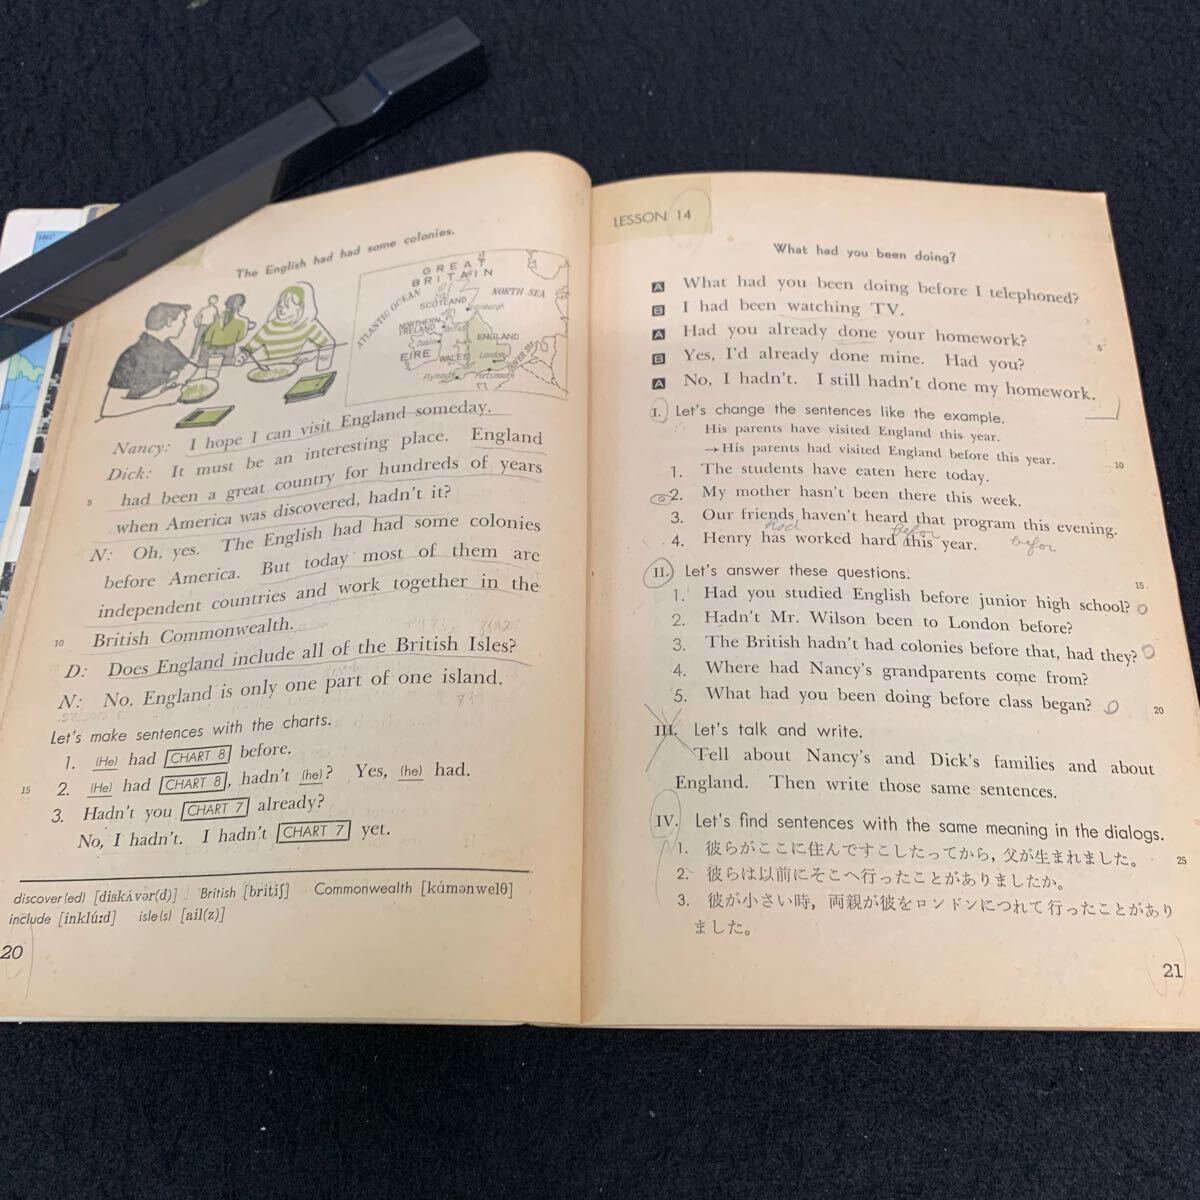 The English had had some colonies.
GREAT
BRITAIN
ATLANTIC OCEAN
NORTH SEA
SCOTLAND
Edinburgh
NORTHERN
IRELAND
Belfast
Dublin
EIRE
WALES
ENGLAND
London
Plymouth
Portsmouth
Nancy: I hope I can visit England someday.
Dick: It must be an interesting place. England
5 had been a great country for hundreds of years
when America was discovered, hadn't it?
N: Oh, yes. The English had had some colonies
before America. But today most of them are
independent countries and work together in the
10 British Commonwealth.
D: Does England include all of the British Isles?
N: No. England is only one part of one island.
Let's make sentences with the charts.
1. (He) had CHART 8 before.
15 2. (He) had CHART 8, hadn't (he)? Yes, (he) had.
3. Hadn't you CHART 7 already?
No, I hadn't. I hadn't CHART 7 yet.
discover(ed) [diskʌ́vər(d)] British [brítiʃ] Commonwealth [kámənwelθ]
include [inklúːd] isle(s) [ail(z)]
20
LESSON 14
What had you been doing?
A What had you been doing before I telephoned?
B I had been watching TV.
A Had you already done your homework? 5
B Yes, I'd already done mine. Had you?
A No, I hadn't. I still hadn't done my homework.
I. Let's change the sentences like the example.
His parents have visited England this year.
→His parents had visited England before this year. 10
1. The students have eaten here today.
2. My mother hasn't been there this week.
3. Our friends haven't heard that program this evening.
had befor befor
4. Henry has worked hard this year.
II. Let's answer these questions. 15
1. Had you studied English before junior high school?
2. Hadn't Mr. Wilson been to London before?
3. The British hadn't had colonies before that, had they?
4. Where had Nancy's grandparents come from?
5. What had you been doing before class began? 20
III. Let's talk and write.
Tell about Nancy's and Dick's families and about
England. Then write those same sentences.
IV. Let's find sentences with the same meaning in the dialogs.
1. 彼らがここに住んですこしたってから, 父が生まれました。 25
2. 彼らは以前にそこへ行ったことがありましたか。
3. 彼が小さい時, 両親が彼をロンドンにつれて行ったことがあり
ました。
21